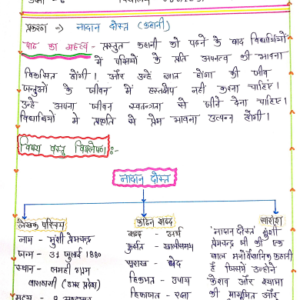 प्रकरण → नादान दोस्त (कहानी)
पाठ का महत्व - प्रस्तुत कहानी को पढ़ने के बाद विद्यार्थियों
में पक्षियों के प्रति अपनत्व की भावना
विकसित होगी। और उन्हें ज्ञात होगा की जीव
जन्तुओं के जीवन में हस्तक्षेप नहीं करना चाहिए।
उन्हें अपना जीवन स्वतन्त्रता से जीने देना चाहिए।
विद्यार्थियों में प्रकृति से प्रेम भावना उत्पन्न होगी।
विषय वस्तु विश्लेषण :-
नादान दोस्त
लेखक परिचय
नाम - मुंशी प्रेमचन्द्र
जन्म - 31 जुलाई 1880
स्थान - लमही ग्राम
वाराणसी (उत्तर प्रदेश)
कठिन शब्द
शब्द - अर्थ
सुराख - छेद
हिकमत - उपाय
हिफाजत - रक्षा
सारांश
नादान दोस्त मुंशी
प्रेमचन्द्र जी की एक
बाल मनोवैज्ञानिक कहानी
है जिसमें उन्होंने
केशव और श्यामा